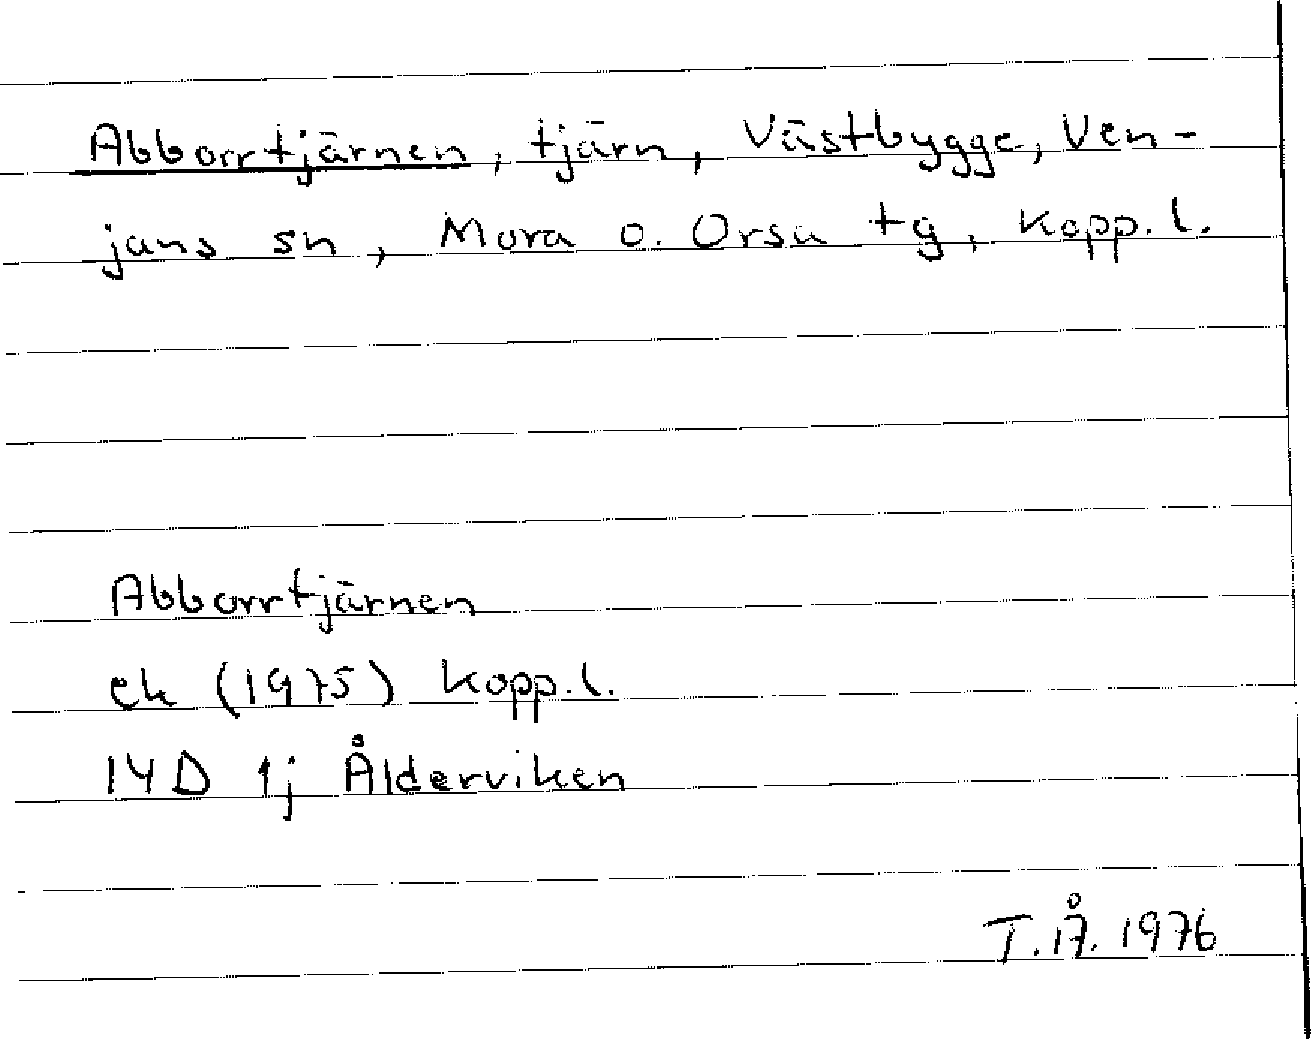 Abborrtjärnen, tjärn, Västbygge, Ven-
jans sn, Mora o. Orsa tg, Kopp. l.
Abborrtjärnen
ek (1975) Kopp. l.
14 D 1j Ålderviken
T. Å. 1976